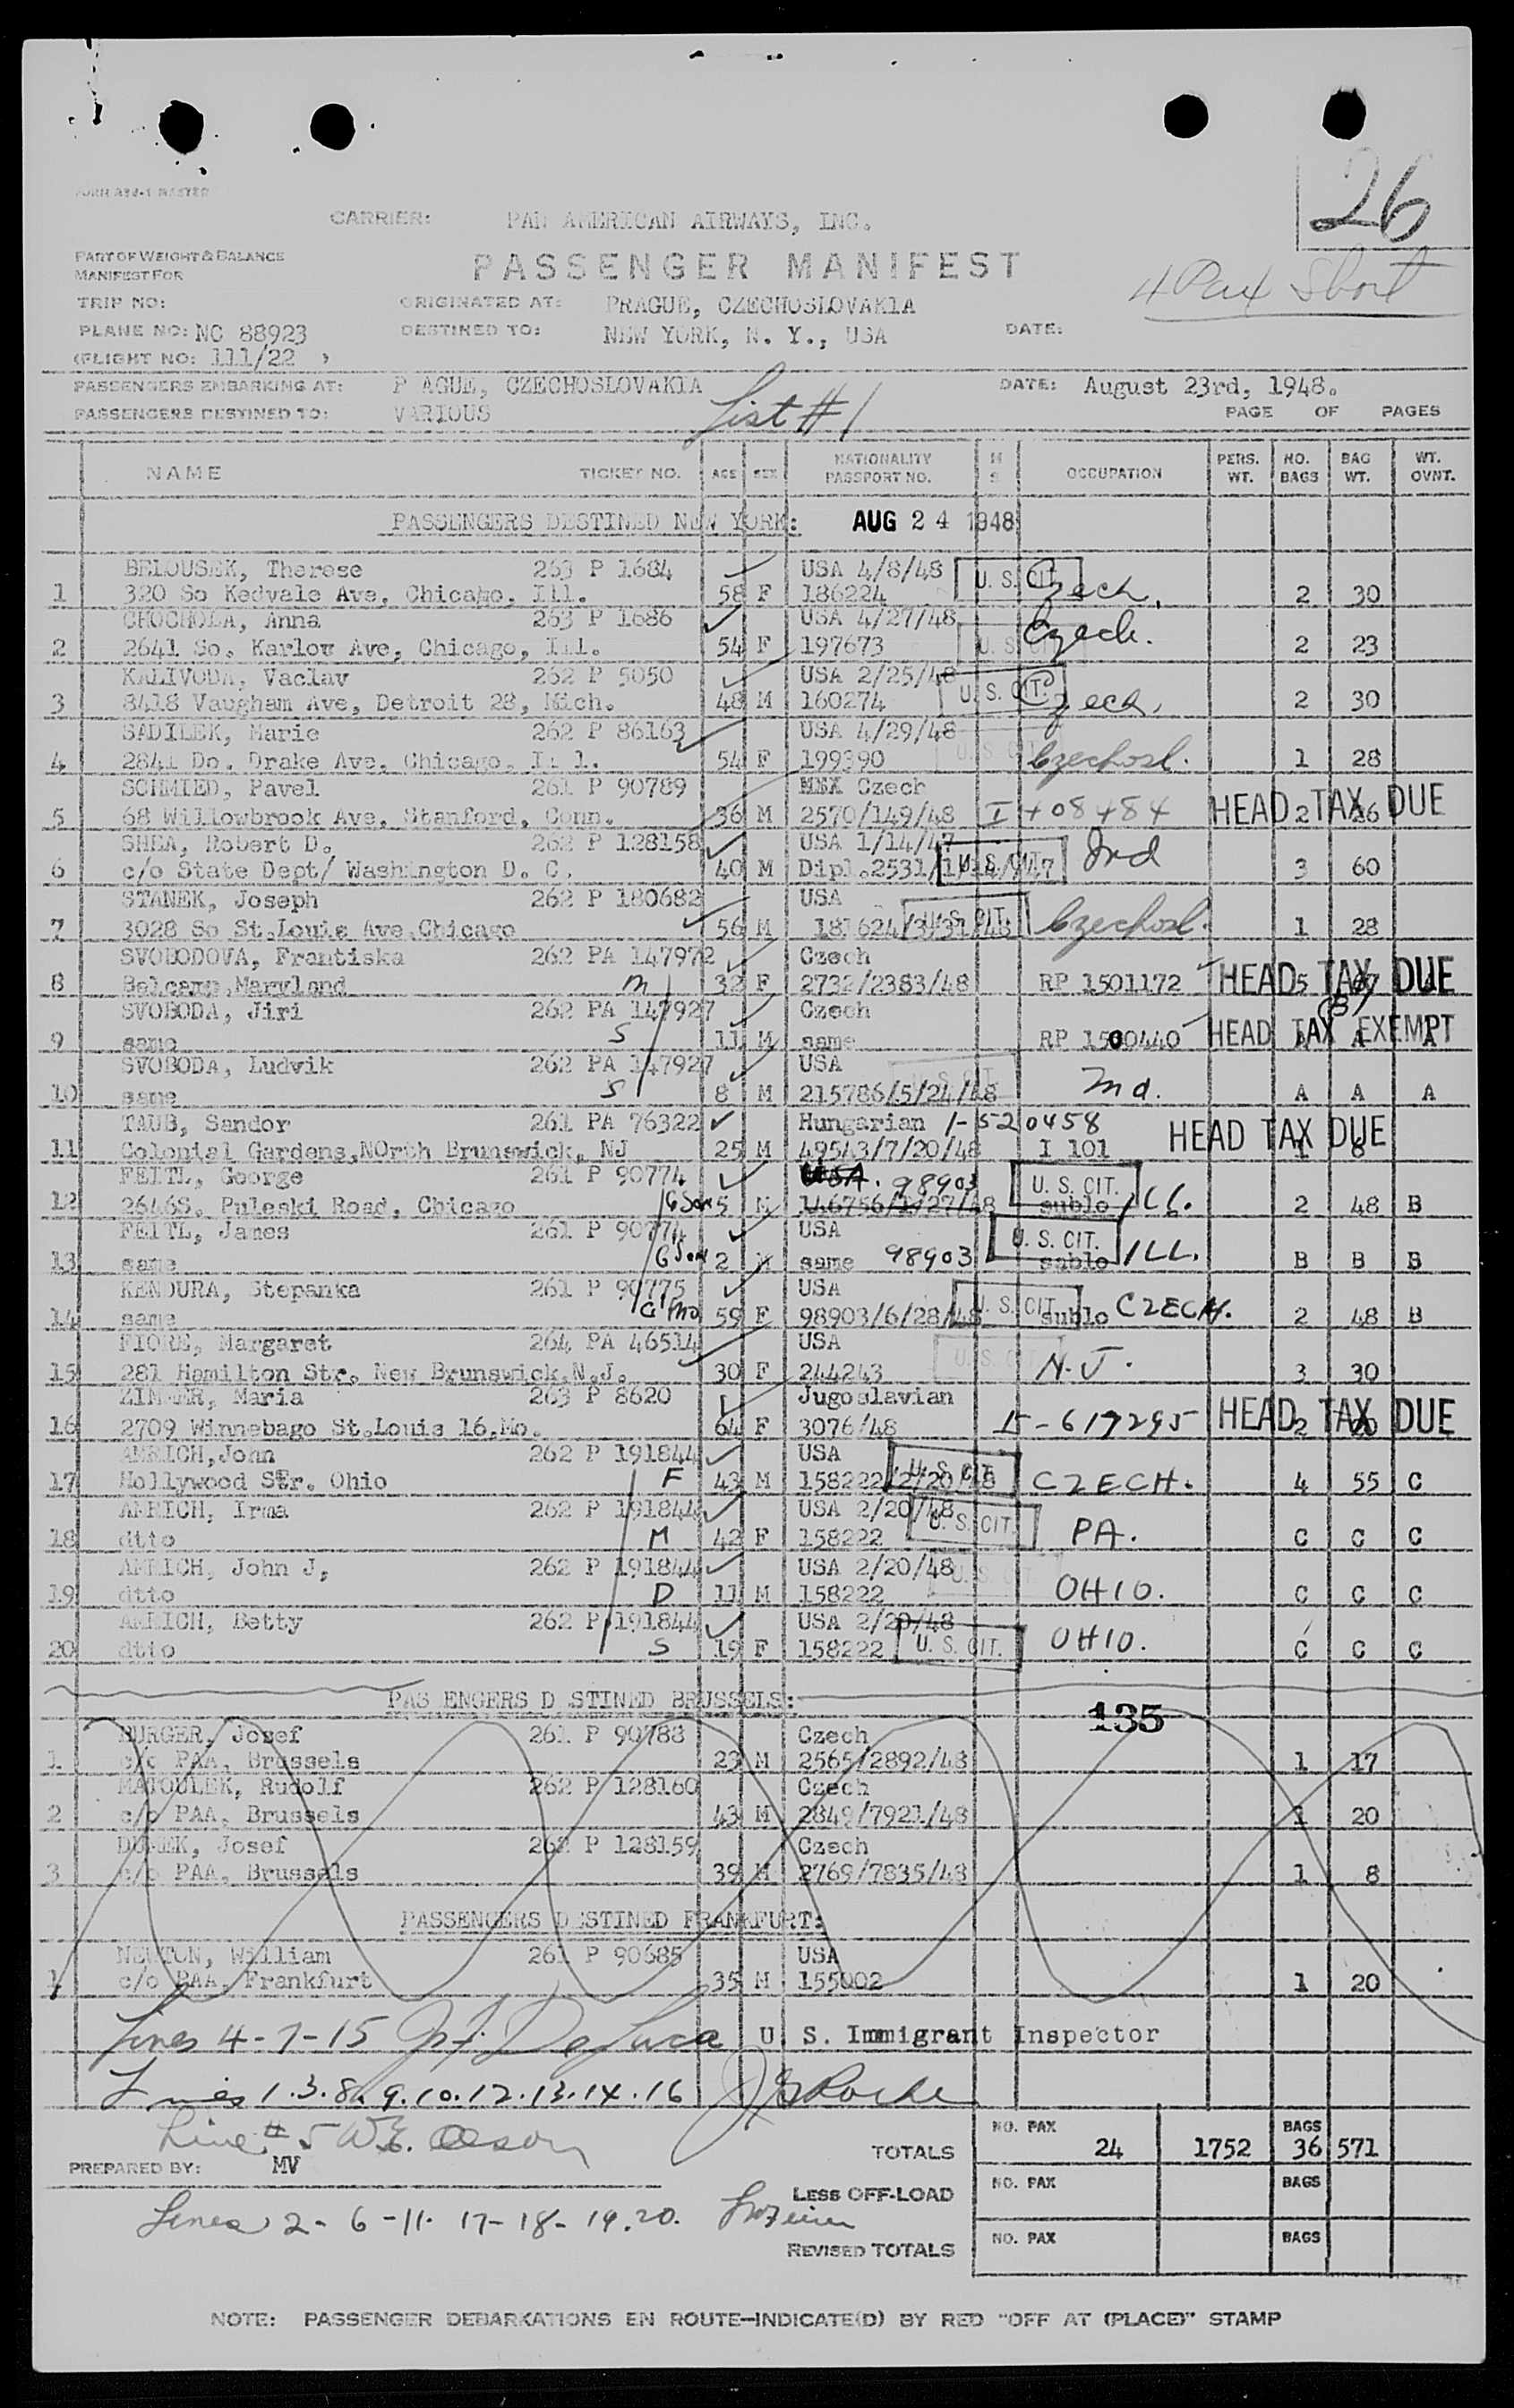 26
CARRIER: PAN AMERICAN AIRWAYS, INC.
PART OF WEIGHT & BALANCE
MANIFEST FOR
PASSENGER MANIFEST
4 Pax Short
TRIP NO: ORIGINATED AT: PRAGUE, CZECHOSLOVAKIA
PLANE NO: NC 88923 DESTINED TO: NEW YORK, N. Y., USA DATE:
(FLIGHT NO: 111/22 )
PASSENGERS EMBARKING AT: P AGUE, CZECHOSLOVAKIA DATE: August 23rd, 1948.
PASSENGERS DESTINED TO: VARIOUS List # 1 PAGE OF PAGES
NAME TICKET NO. AGE SEX NATIONALITY PASSPORT NO. M S OCCUPATION PERS. WT. NO. BAGS BAG WT. WT. OVNT.
PASSENGERS DESTINED NEW YORK: AUG 24 1948
BELOUSEK, Therese 263 P 1684 USA 4/8/48 U. S. CIT.
1 320 So Kedvale Ave, Chicago, Ill. 58 F 186224 Czech. 2 30
CHOCHOLA, Anna 263 P 1686 USA 4/27/48
2 2641 So. Karlov Ave, Chicago, Ill. 54 F 197673 U. S. CIT. Czech. 2 23
KALIVODA, Vaclav 262 P 5050 USA 2/25/48
3 8418 Vaugham Ave, Detroit 28, Mich. 48 M 160274 U. S. CIT. Czech. 2 30
SADILEK, Marie 262 P 86163 USA 4/29/48
4 2841 Do. Drake Ave, Chicago, Ill. 54 F 199390 U. S. CIT. Czechosl. 1 28
SCHMIED, Pavel 261 P 90789 Czech
5 68 Willowbrook Ave, Stanford, Conn. 36 M 2570/149/48 HEAD TAX DUE 2
SHEA, Robert D. 262 P 128158 USA 1/14/47
6 c/o State Dept/ Washington D. C. 40 M Dipl.2531/ U. S. CIT. Ind 3 60
STANEK, Joseph 262 P 180682 USA
7 3028 So St.Louis Ave.Chicago 56 M 181624/3/31/48 U. S. CIT. Czechosl. 1 28
SVOBODOVA, Frantiska 262 PA 147972 Czech
8 Belcamp,Maryland m 32 F 2732/2383/48 RP 1501172 HEAD TAX DUE 5
SVOBODA, Jiri 262 PA 147927 Czech
9 same S 11 M same RP 1500440 HEAD TAX EXEMPT A A A
SVOBODA, Ludvik 262 PA 147927 USA
10 same S 8 M 215786/5/24/48 U. S. CIT. Md. A A A
TAUB, Sandor 261 PA 76322 Hungarian 1-520458
11 Colonial Gardens,NOrth Brunswick, NJ 25 M 49543/7/20/48 I 101 HEAD TAX DUE 1 8
FEITL, George 261 P 90774 USA. 98903
12 2646S. Pulaski Road, Chicago GSon 5 M 146756/1/27/48 U. S. CIT. sublo ILL. 2 48 B
FEITL, James 261 P 90774 USA
13 same GSon 2 M same 98903 U. S. CIT. sublo ILL. B B B
KENDURA, Stepanka 261 P 90775 USA
14 same G Mo 59 F 98903/6/28/48 U. S. CIT. sublo CZECH. 2 48 B
FIORE, Margaret 264 PA 46514 USA
15 281 Hamilton Str. New Brunswick,N.J. 30 F 244243 U. S. CIT. N.J. 3 30
Maria 263 P 8620 Jugoslavian
16 2709 Winnebago St.Louis 16,Mo. 64 F 3076/48 617295 HEAD TAX DUE 2 20
AMRICH,John 262 P 191844 USA
17 Hollywood Str. Ohio F 43 M 158222/2/20/48 U. S. CIT. CZECH. 4 55 C
AMRICH, Irma 262 P 191844 USA 2/20/48
18 dtto M 42 F 158222 U. S. CIT. PA. C C C
AMRICH, John J, 262 P 191844 USA 2/20/48
19 dtto D 11 M 158222 U. S. CIT. OHIO. C C C
AMRICH, Betty 262 P 191844 USA 2/20/48
20 dtto S 19 F 158222 U. S. CIT. OHIO. C C C
PAS ENGERS D STINED BRUSSELS: 135
BURGER, Josef 261 P 90788 Czech
1 c/o PAA, Brussels 23 M 2565/2892/48 1 17
MATOULEK, Rudolf 262 P 128160 Czech
2 c/o PAA, Brussels 43 M 2849/7921/48 1 20
Josef 262 P 128159 Czech
3 c/o PAA, Brussels 39 M 2769/7835/48 1 8
PASSENGERS DESTINED FRANKFURT:
NEWTON, William 261 P 90685 USA
1 c/o PAA, Frankfurt 35 M 155002 1 20
Lines 4-7-15 De Luca U. S. Immigrant Inspector
Lines 1.3.8.9.10.12.13.14.16 Roche
Line # 5 W.E. Olson
NO. PAX BAGS
TOTALS 24 1752 36 571
PREPARED BY: MV
LESS OFF-LOAD NO. PAX BAGS
Lines 2-6-11. 17-18-19.20.
REVISED TOTALS NO. PAX BAGS
NOTE: PASSENGER DEBARKATIONS EN ROUTE—INDICATE(D) BY RED "OFF AT (PLACE)" STAMP